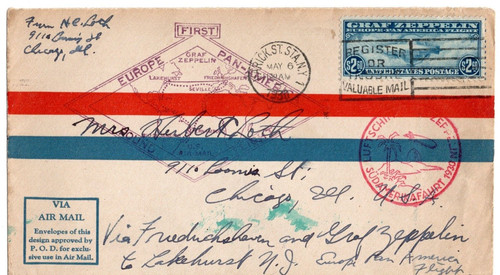 From H.C. Loch
9116 Loomis St
Chicago, Ill.
FIRST
EUROPE PAN-AMERICA
ROUND
GRAF ZEPPELIN
LAKEHURST
FRIEDRICHSHAFEN
SEVILLE
AIR MAIL
VARICK ST. STA. N.Y.
MAY 6
AM
1930
GRAF ZEPPELIN
EUROPE-PAN-AMERICA FLIGHT
$2.60
$2.60
UNITED STATES POSTAGE
REGISTER
OR
VALUABLE MAIL
Mrs. Herbert Loch
9116 Loomis St;
Chicago, Ill. U.S.A.
LUFTSCHIFF GRAF ZEPPELIN
SÜDAMERIKAFAHRT 1930
VIA
AIR MAIL
Envelopes of this
design approved by
P. O. D. for exclu-
sive use in Air Mail.
Via Friedrichshaven and Graf Zeppelin
to Lakehurst N.J. Europe Pan America
Flight